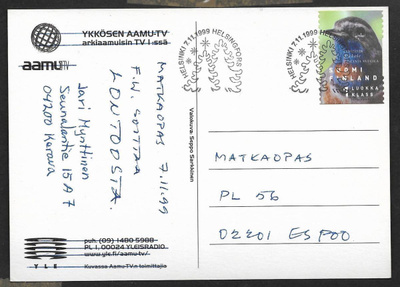 YKKÖSEN AAMU-TV
arkiaamuisin TV 1:ssä
aamuTV
MATKAOPAS 7.11.99
F.W. SOITTAA
KONTOOSTA.
Jari Mynttinen
Seunalantie 15 A 7
04200 Kerava
puh. (09) 1480 5988
PL 1, 00024 YLEISRADIO
www.yle.fi/aamu-tv/
YLE
Kuvassa Aamu-TV:n toimittajia
Valokuva: Seppo Sarkkinen
HELSINKI 7.11.1999 HELSINGFORS
HELSINKI 7.11.1999
SUOMI
FINLAND
LUOKKA
KLASS
MATKAOPAS
PL 56
02201 ESPOO